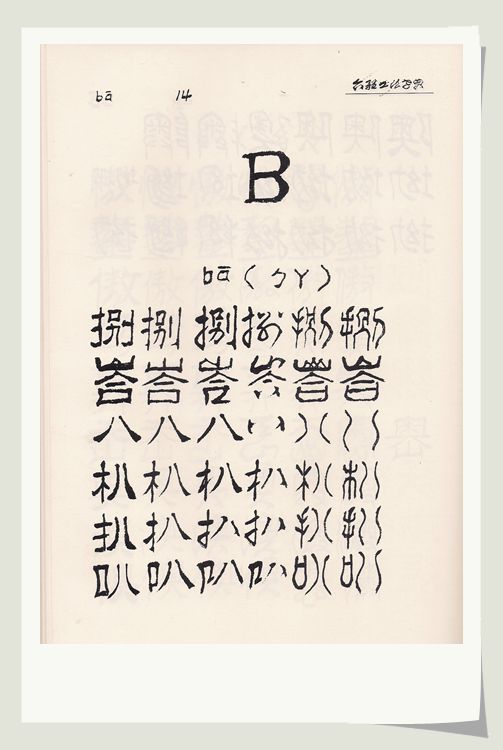 bā 14
B
bā (ㄅㄚ)
捌 捌 捌 捌 捌 捌
峇 峇 峇 峇 峇 峇
八 八 八 八 八 八
朳 朳 朳 朳 朳 朳
扒 扒 扒 扒 扒 扒
叭 叭 叭 叭 叭 叭